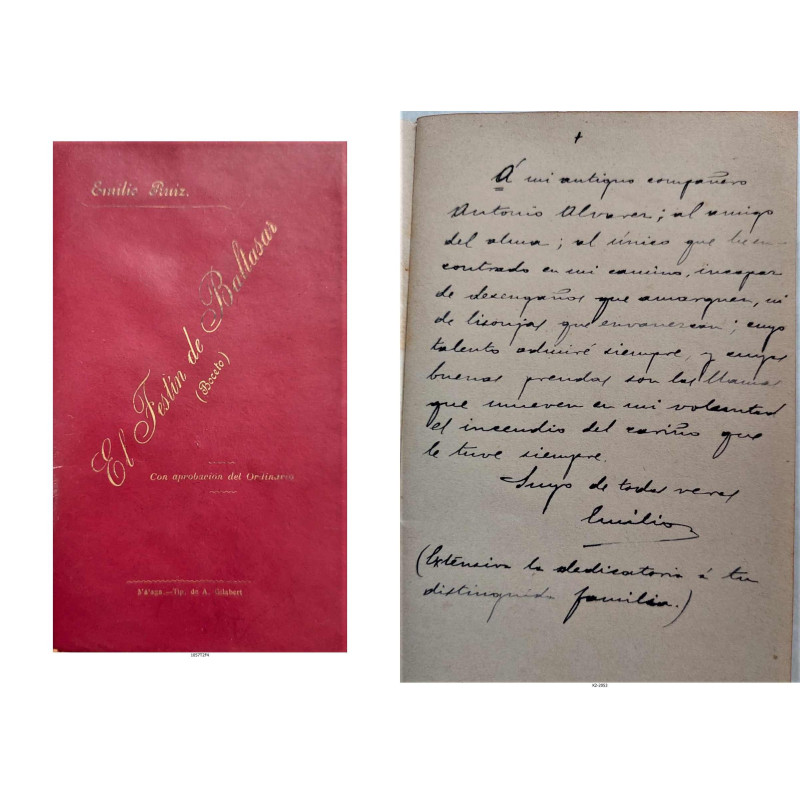 Emilio Ruiz.
El Festín de Baltasar
(Boceto)
Con aprobación del Ordinario
Málaga.—Tip. de A. Gilabert
Á mi antiguo compañero
Antonio Alvarez; al amigo
del alma; al único que he en-
contrado en mi camino, incapaz
de desengaños que amarguen, ni
de lisonjas que envanezcan; cuyo
talento admiré siempre, y cuyas
buenas prendas son las llamas
que mueven en mi voluntad
el incendio del cariño que
le tuve siempre.
Suyo de todas veras
Emilio
(Extensiva la dedicatoria á tu
distinguida familia.)
K2-2953